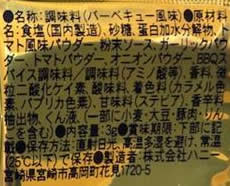 ●名称:調味料(バーベキュー風味)●原材料
名:食塩(国内製造)、砂糖、蛋白加水分解物、ト
マト風味パウダー、粉末ソース、ガーリックパ
ウダー、トマトパウダー、オニオンパウダー、BBQス
パイス調味料/調味料(アミノ酸等)、香料、微
粒二酸化ケイ素、酸味料、着色料(カラメル色
素、パプリカ色素)、甘味料(ステビア)、香辛料
抽出物、くん液、(一部に小麦・大豆・豚肉・りん
ごを含む)●内容量:3g●賞味期限:下部に記
載●保存方法:直射日光、高温多湿を避け、常温
(25℃以下)で保存●製造者:株式会社ハニー
宮崎県宮崎市高岡町花見1720-5